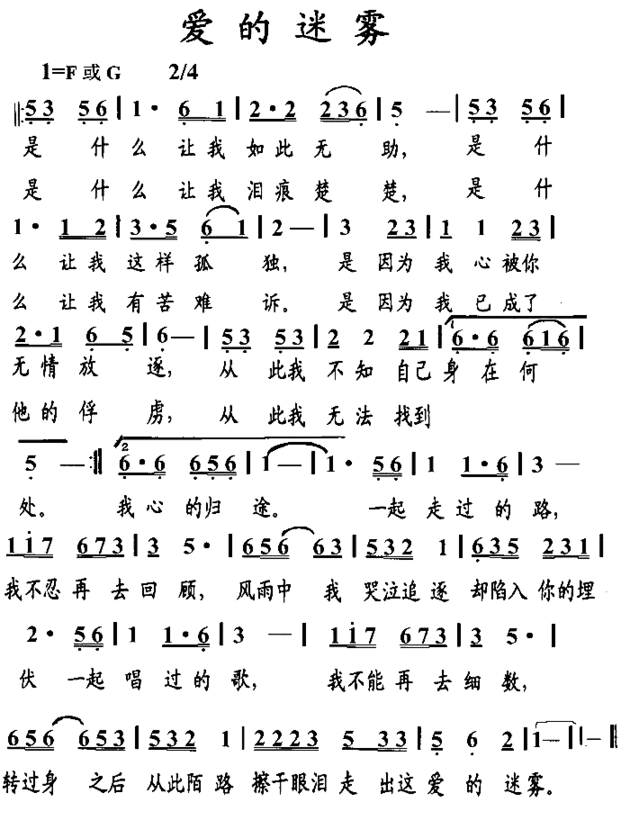 爱的迷雾
1=F 或 G 2/4
𝄆 5 3 5 6 | 1· 6 1 | 2·2 2 3 6 | 5 — | 5 3 5 6 |
是 什 么 让我 如此 无 助, 是 什
是 什 么 让我 泪痕 楚 楚, 是 什
1· 1 2 | 3·5 6 1 | 2 — | 3 2 3 | 1 1 2 3 |
么 让我 这样 孤 独, 是 因为 我 心 被你
么 让我 有苦 难 诉。 是 因为 我 已 成了
2·1 6 5 | 6 — | 5 3 5 3 | 2 2 2 1 | 1 6·6 6 1 6 |
无情 放 逐, 从 此我 不 知 自己 身 在 何
他的 俘 虏, 从 此我 无 法 找到
5 — 𝄇 2 6·6 6 5 6 | 1 — | 1· 5 6 | 1 1·6 | 3 —
处。 我 心 的归 途。 一起 走 过 的 路,
1 1 7 6 7 3 | 3 5· | 6 5 6 6 3 | 5 3 2 1 | 6 3 5 2 3 1 |
我不忍 再 去 回 顾, 风雨中 我 哭泣追 逐 却陷入 你的埋
2· 5 6 | 1 1·6 | 3 — | 1 1 7 6 7 3 | 3 5· |
伏 一起 唱 过的 歌, 我不能 再 去 细 数,
6 5 6 6 5 3 | 5 3 2 1 | 2 2 2 3 5 3 3 | 5 6 2 | 1 — | 1 — ‖
转过身 之后 从此陌 路 擦干眼泪 走 出这 爱 的 迷 雾。